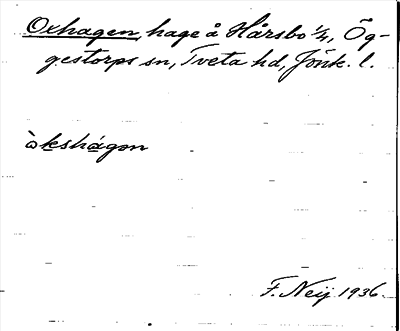 Oxhagen, hage å Hårsbo 1/4, Ög-
gestorps sn, Tveta hd, Jönk. l.
òkshágən
F. Neij 1936.